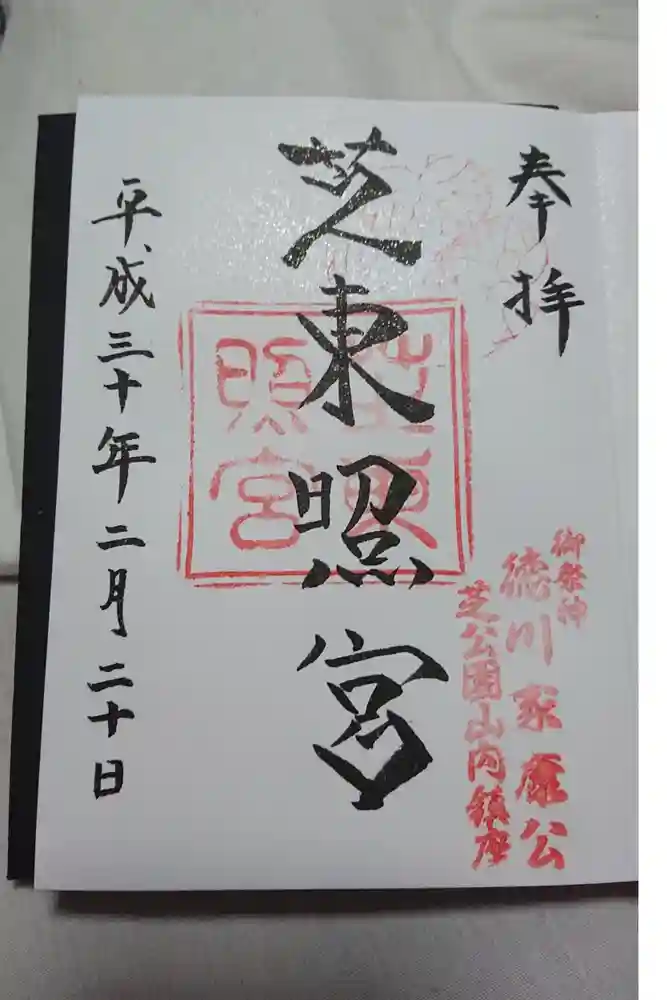 奉拝
御祭神
徳川家康公
芝公園山内鎮座
芝東照宮
芝東
照宮
平成三十年二月二十日